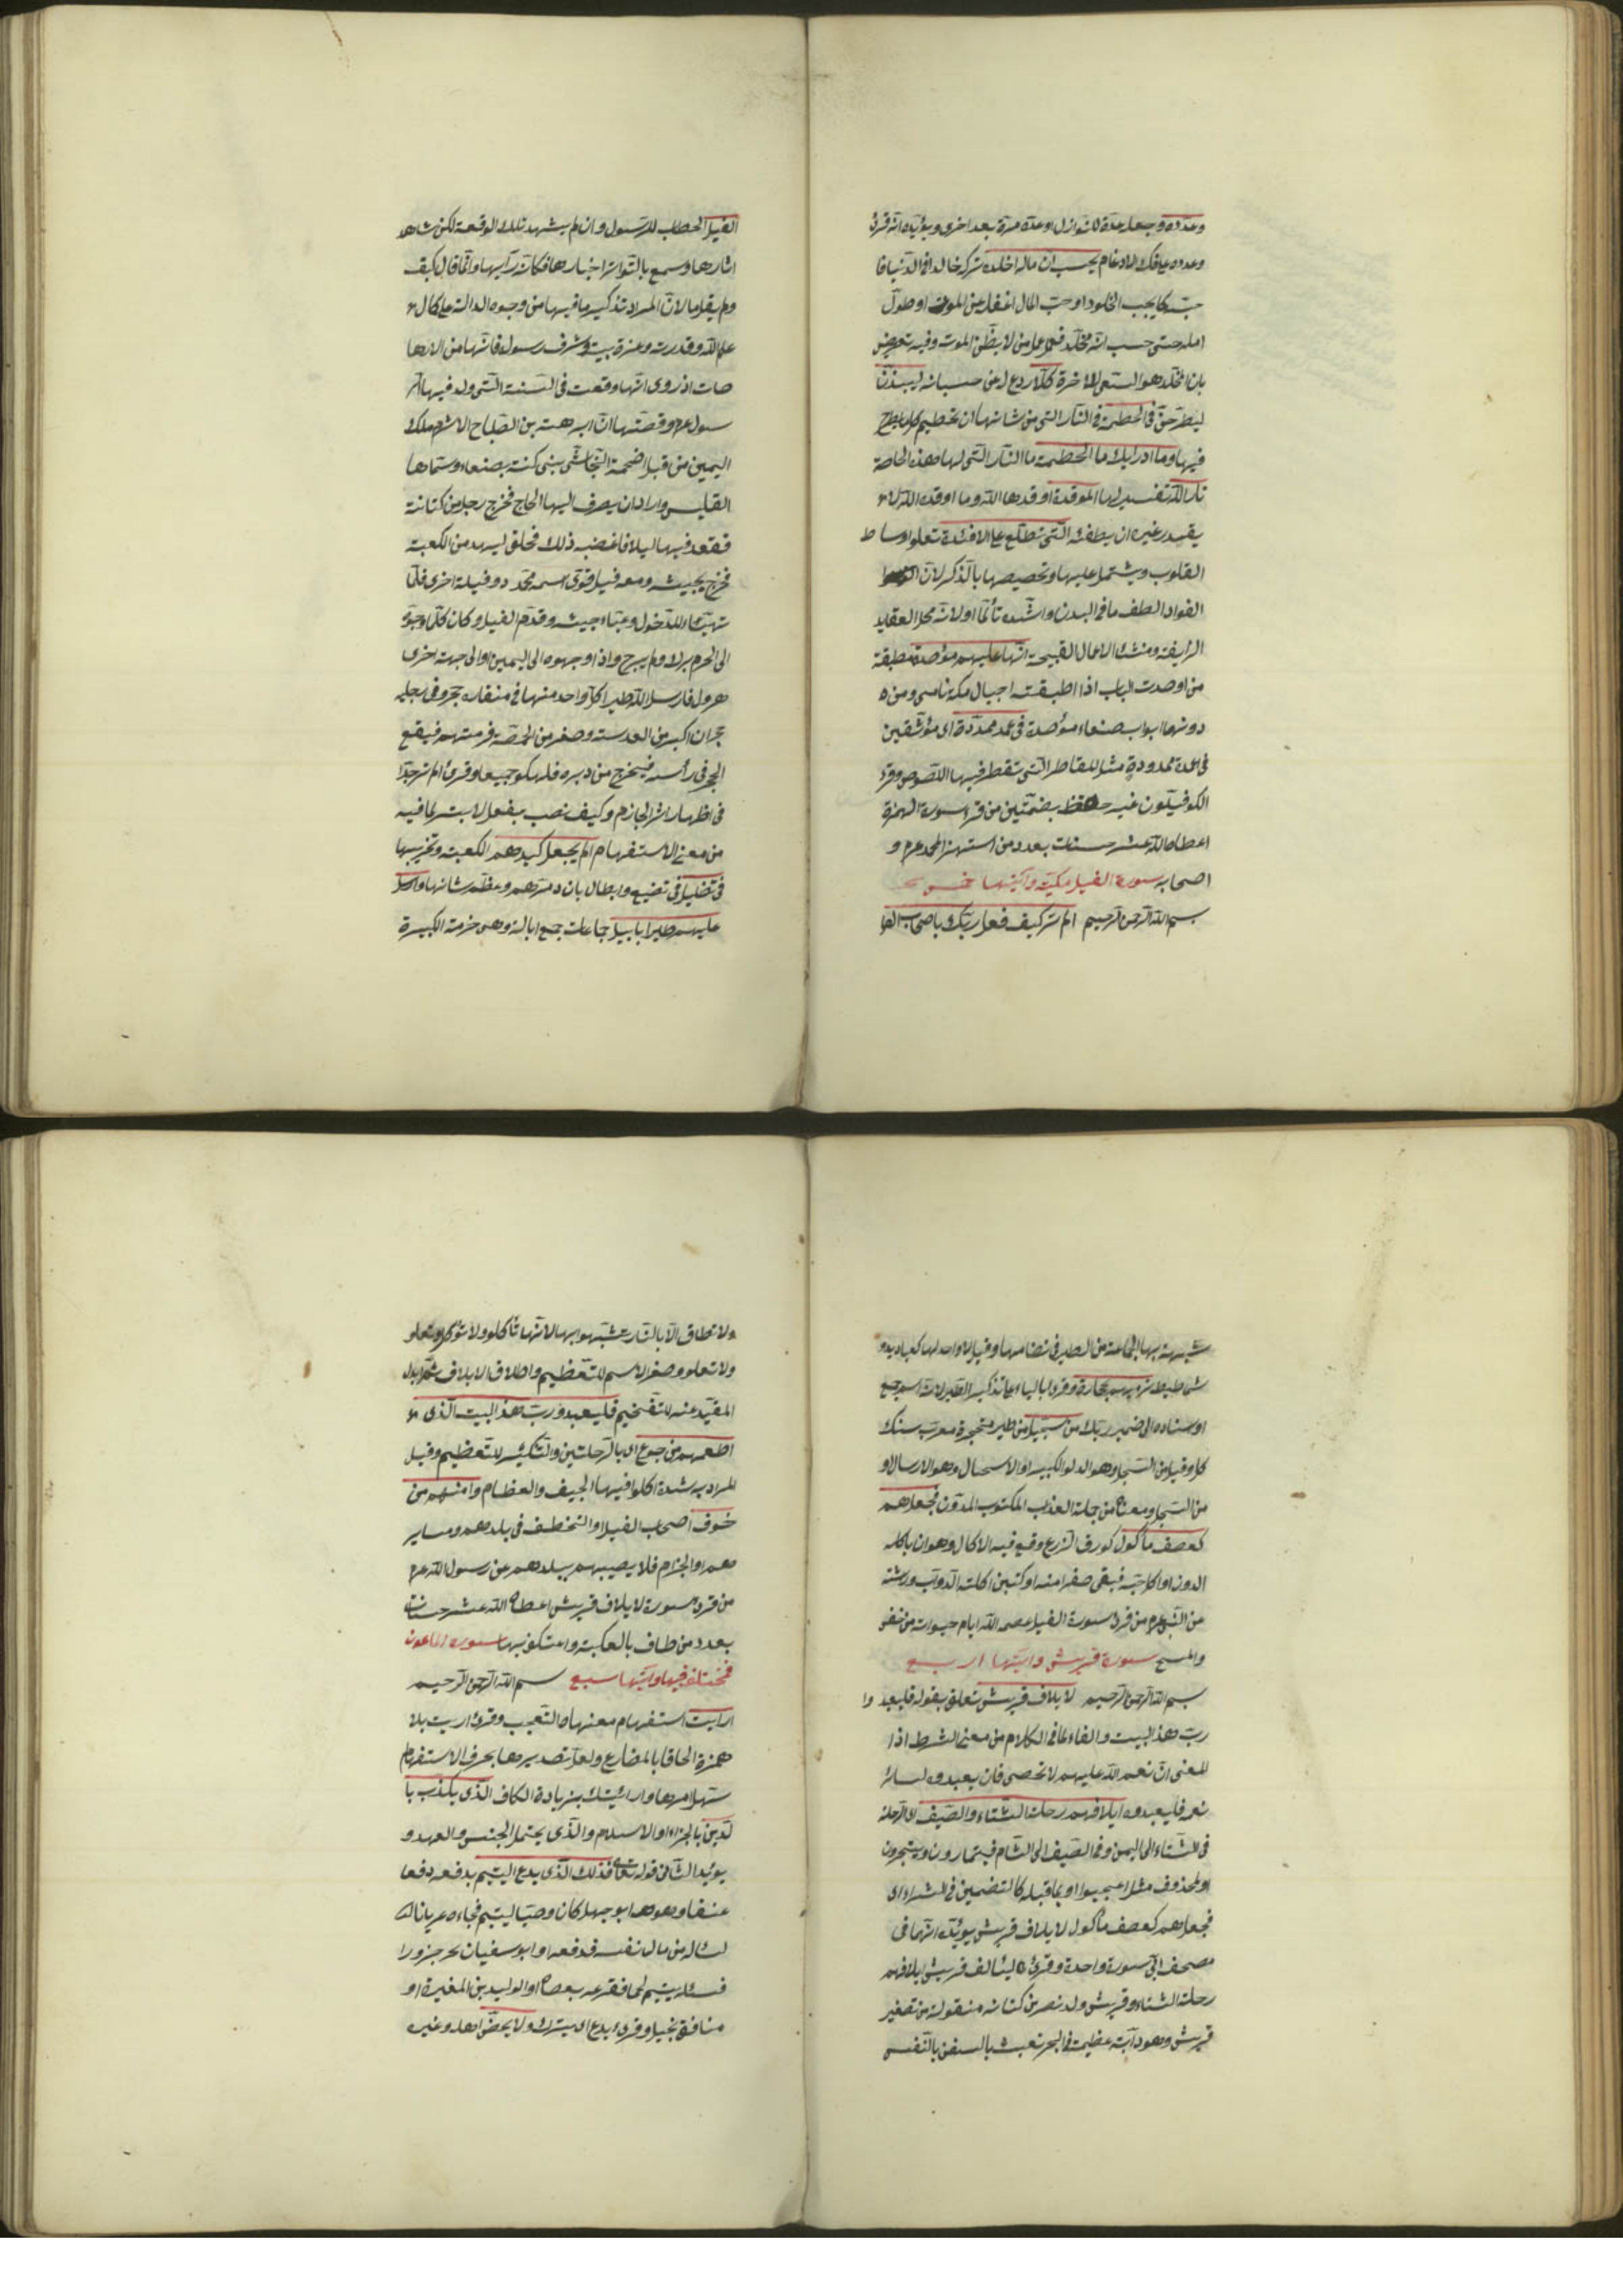 وعدده وجعله عدة للنوازل او عده مرة بعد اخرى ويؤيده انه قرئ
وعدده على فك الادغام يحسب ان ماله اخلده تركه خالدا في الدنيا فا
حبه كما يحب الخلود او حب المال اغفله عن الموت او طول
امله حتى حسب انه مخلد فعمل عمل من لا يظن الموت وفيه تعريض
بان المخلد هو السعى للاخرة كلا ردع له عن حسبانه لينبذن
ليطرحن في الحطمة في النار التى من شانها ان تحطم كل ما يطرح
فيها وما ادريك ما الحطمة ما النار التى لها هذه الخاصة
نار الله تفسير لها الموقدة اوقدها الله وما اوقده الله لا
يقدر غيره ان يطفئه التى تطلع على الافئدة تعلو اوساط
القلوب وتشتمل عليها وتخصيصها بالذكر لان
الفواد الطف ما في البدن واشده تألما او لانه محل العقايد
الزايفة ومنشاء الاعمال القبيحة انها عليهم مؤصدة مطبقة
من اوصدت الباب اذا اطبقته اجبال مكة ناسى ومن ه
دونها ابواب صنعاء مؤصدة في عمد ممددة اى موثقين
في اعمدة ممدودة مثل المقاطر التى تقطر فيها اللصوص وقرء
الكوفيون غير حفظ بضمتين من قرا سورة الهمزة
اعطاه الله عشر حسنات بعدد من استهزا بمحمد عم و
اصحابه سورة الفيل مكية وآيتها خمس
بسم الله الرحمن الرحيم الم تر كيف فعل ربك باصحاب الفيل
الفيل الخطاب للرسول وان لم يشهد تلك الوقعة لكن شاهد
اثارها وسمع بالتواتر اخبارها فكانه رآيها وانما قال كيف
ولم يقل ما لان المراد تذكير ما فيها من وجوه الدالة على كمال
علم الله وقدرته وعزة بيته وشرف رسوله فانها من الارها
صات اذ روى انها وقعت في السنة التى ولد فيها الر
سول عم وقصتها ان ابرهة بن الصباح الاشرم ملك
اليمن من قبل اضحمة النجاشى بنى كنيسة بصنعاء وسماها
القليس واراد ان يصرف اليها الحاج فخرج رجل من كنانة
فقعد فيها ليلا فاغضبه ذلك فحلف ليهدمن الكعبة
فخرج بجيشه ومعه فيل قوى اسمه محمود وفيلة اخرى فلما
تهيئاء للدخول وعباء جيشه وقدم الفيل وكان كلما وجهوه
الى الحرم برك ولم يبرح واذا وجهوه الى اليمين او الى جهة اخرى
هرول فارسل الله طيرا كل واحد منها في منقاره حجر وفي رجليه
حجران اكبر من العدسة وصغر من الحمصة فرمتهم فيقع
الحجر في رأسه فيخرج من دبره فهلكوا جميعا وقرئ الم تر جدا
في اظهار اثر الجازم وكيف نصب بفعل لا بتر لما فيه
من معنى الاستفهام الم يجعل كيدهم الكعبة وتخريبها
في تضليل في تضييع وابطال بان دمرهم وعظم شانها وارسل
عليهم طيرا ابابيل جماعات جمع ابالة وهى حزمة الكبيرة
شبهت بها الجماعة من الطير في تضامها وقيل لا واحد لها كعباديد و
شماطيط ترميهم بحجارة وقرئ بالياء على تذكير الطير لانه اسم جمع
او سناده الى ضمير ربك من سجيل من طين متحجرة معرب سنك
كل وقيل من السجل وهو الدلو الكبير او الاسجال وهو الارسال او
من السجل ومعناه من جملة العذاب المكتوب المدون فجعلهم
كعصف مأكول كورق الزرع وقع فيه الاكال وهو ان ياكله
الدود او اكل حبه فبقى صفرا منه او كتبن اكلته الدواب ورثته
عن النبى عم من قرئ سورة الفيل عصمه الله ايام حيواته من خفى
والمسخ سورة قريش وآيتها اربع
بسم الله الرحمن الرحيم لايلاف قريش تعلق بقوله فليعبد وا
رب هذا البيت والفاء لما في الكلام من معنى الشرط اذا
المعنى ان نعم الله عليهم لا تحصى فان يعبدوه لسائر
نعمه فليعبدوه ايلافهم رحلة الشتاء والصيف اى الرحلة
في الشتاء الى اليمن وفي الصيف الى الشام فيتمارون ويتجرون
او لمحذوف مثل اعجبوا او بما قبله كالتضمين في الشعر اى
فجعلهم كعصف مأكول لايلاف قريش يويده انها في
مصحف ابى سورة واحدة وقرئ ليئالف قريش ايلافهم
رحلة الشتاء وقريش ولد نصر بن كنانه منقولة من تصغير
قريش وهو دآبة عظيمة في البحر تعبث بالسفن بالنفس
ولا تطاق الا بالنار شبهوا بها لانها تأكل ولا تؤكل وتعلو
ولا تعلو وصغر الاسم للتعظيم واطلاق الايلاف ثم ابدل
المقيد عنه للتفخيم فليعبدو رب هذا البيت الذى
اطعمهم من جوع اى بالرحلتين والتنكير للتعظيم وقيل
المراد به شدة اكلوا فيها الجيف والعظام وامنهم من
خوف اصحاب الفيل او التخطف في بلدهم ومساير
هم او الجزام فلا يصيبهم ببلدهم عن رسول الله عم
من قرء سورة لايلاف قريش اعطاه الله عشر حسنات
بعدد من طاف بالعكبة واعتكف بها سورة الماعون
مختلف فيها وآيتها سبع بسم الله الرحمن الرحيم
ارايت استفهام معناه التعجب وقرئ اريت بلا
همزة الحاقا بالمضارع ولعل تصديرها بحرف الاستفهام
سهل امرها وارائيتك بزيادة الكاف الذى يكذب با
لدين بالجزاء او الاسلام والذى يحتمل الجنس والعهد و
يوئيد الثانى قوله تعالى فذلك الذى يدع اليتيم يدفعه دفعا
عنيفا وهو ابو جهل كان وصيا ليتيم فجاءه عريانا
لسئاله من مال نفسه فدفعه او ابو سفيان نحر جزورا
فسئله يتيم لحما فقرعه بعصاه او الوليد بن المغيرة او
منافق بخيل وقرئ يدع اى يترك ولا يحض اهله وغيره